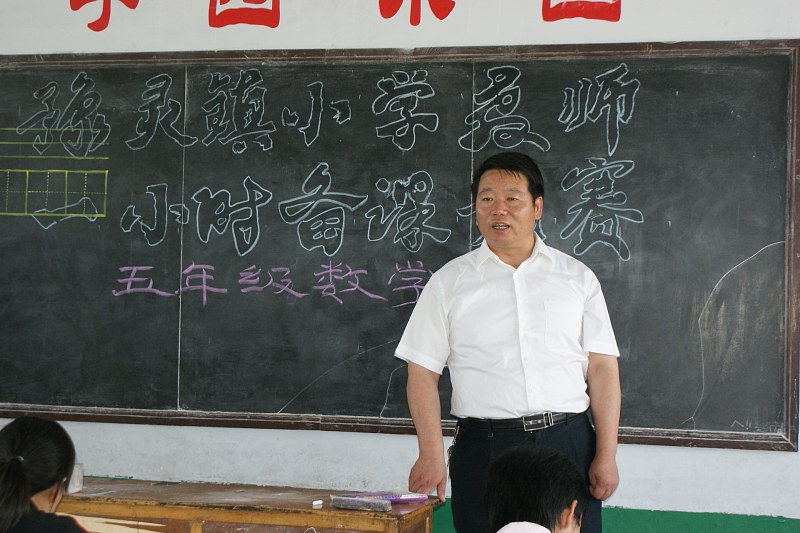 豫灵镇小学教师
一小时备课 赛
五年级数学